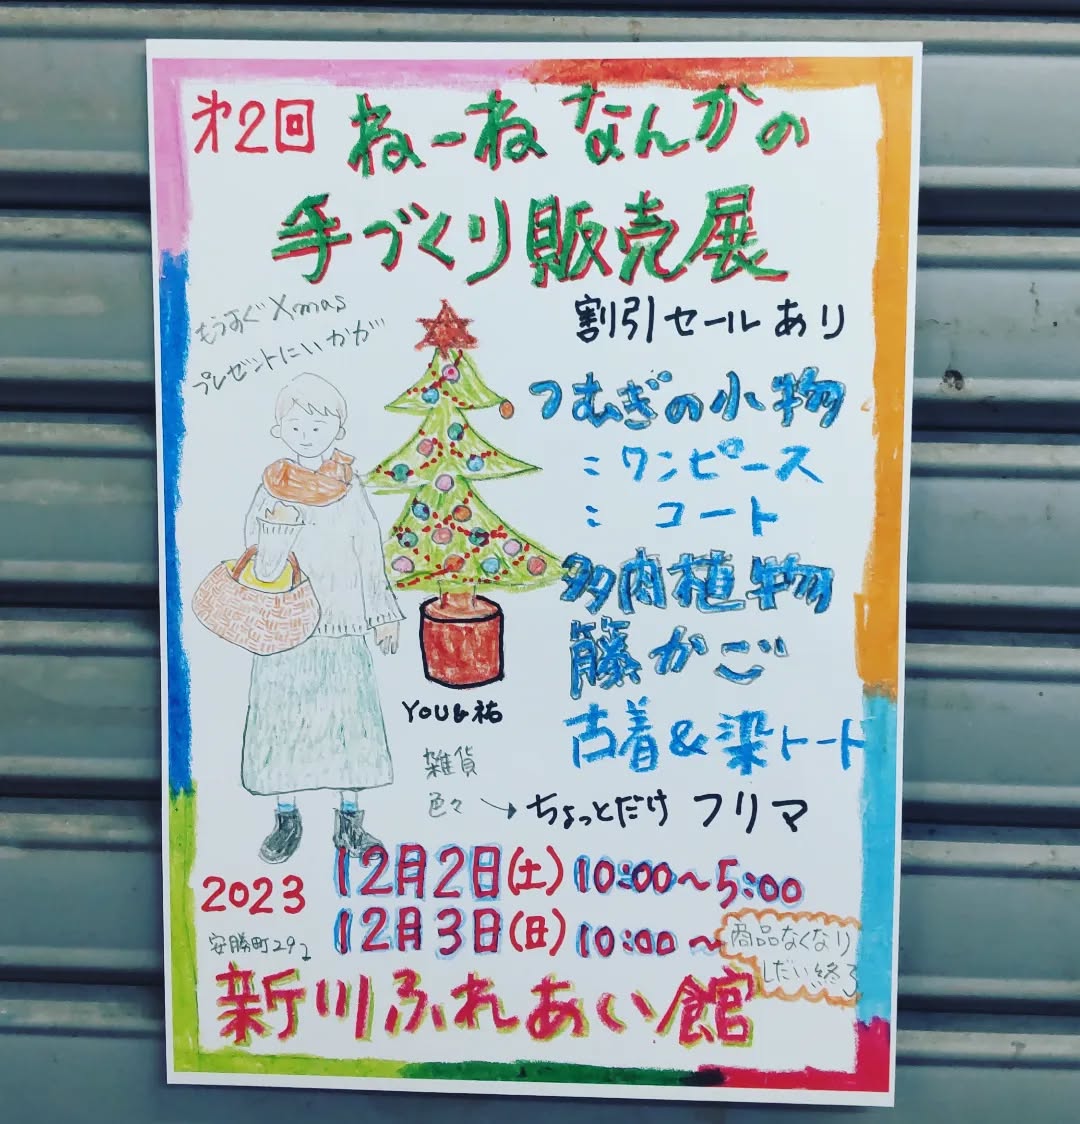 第2回 ねーね なんかの
手づくり販売展
もうすぐXmas
プレゼントにいかが
割引セールあり
つむぎの小物
：ワンピース
：コート
多肉植物
籐かご
古着＆染トート
YOU&祐
雑貨
色々 → ちょっとだけ フリマ
2023 12月2日(土) 10:00〜5:00
12月3日(日) 10:00〜
商品なくなり
しだい終了
安勝町292
新川ふれあい館